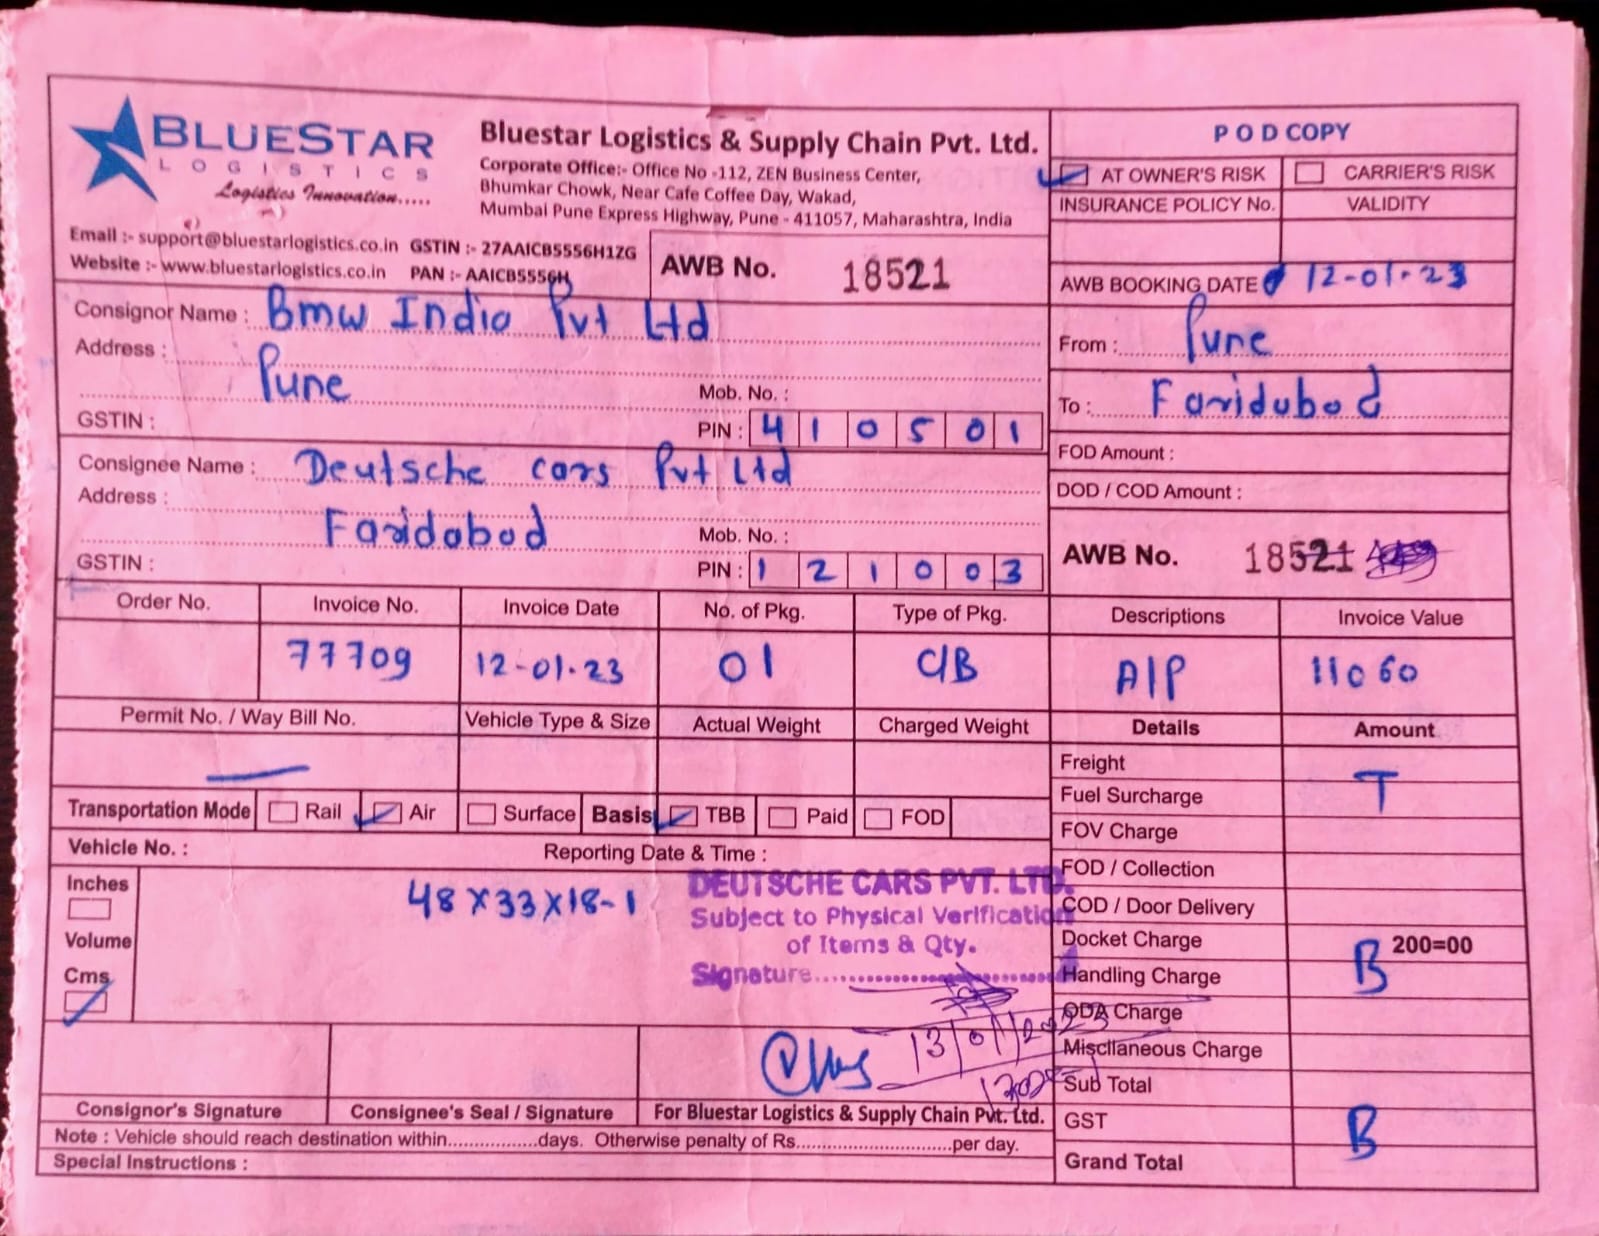 BLUESTAR
LOGISTICS
Logistics Innovation.....
Bluestar Logistics & Supply Chain Pvt. Ltd.
Corporate Office:- Office No -112, ZEN Business Center,
Bhumkar Chowk, Near Cafe Coffee Day, Wakad,
Mumbai Pune Express Highway, Pune - 411057, Maharashtra, India
Email :- support@bluestarlogistics.co.in GSTIN :- 27AAICB5556H1ZG
Website :- www.bluestarlogistics.co.in PAN :- AAICB5556H
AWB No. 18521
POD COPY
AT OWNER'S RISK CARRIER'S RISK
INSURANCE POLICY No. VALIDITY
AWB BOOKING DATE 12-01-23
Consignor Name : Bmw India Pvt Ltd
Address : Pune
Mob. No. :
GSTIN :
PIN : 410501
From : Pune
To : Faridabad
FOD Amount :
DOD / COD Amount :
Consignee Name : Deutsche cars Pvt Ltd
Address : Faridabad
Mob. No. :
GSTIN :
PIN : 121003
AWB No. 18521
Order No. Invoice No. Invoice Date No. of Pkg. Type of Pkg. Descriptions Invoice Value
77709 12-01-23 01 C/B A/P 11060
Permit No. / Way Bill No. Vehicle Type & Size Actual Weight Charged Weight Details Amount
Transportation Mode Rail Air Surface Basis TBB Paid FOD
Vehicle No. : Reporting Date & Time :
Inches
Volume
Cms
48 X 33 X 18-1
DEUTSCHE CARS PVT. LTD.
Subject to Physical Verification
of Items & Qty.
Signature
13/01/2023
Freight
T
Fuel Surcharge
FOV Charge
FOD / Collection
COD / Door Delivery
Docket Charge 200=00
B
Handling Charge
ODA Charge
Miscllaneous Charge
Sub Total
GST
B
Grand Total
Consignor's Signature Consignee's Seal / Signature For Bluestar Logistics & Supply Chain Pvt. Ltd.
Note : Vehicle should reach destination within.................days. Otherwise penalty of Rs.............................per day.
Special Instructions :